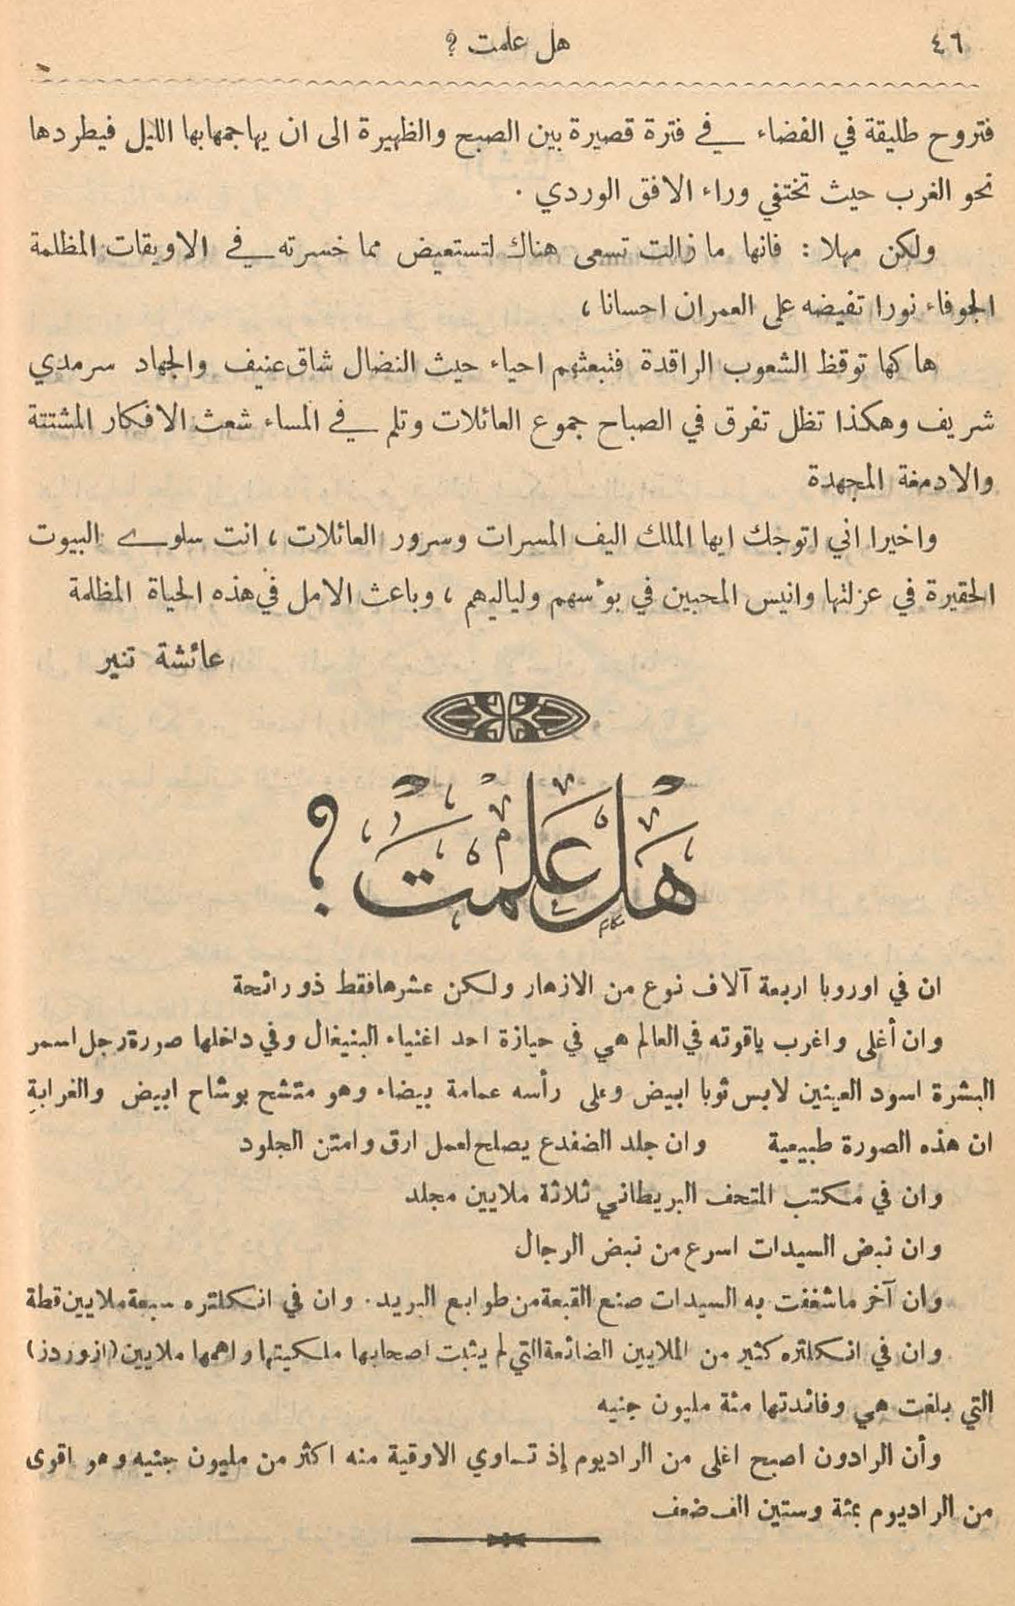 ٤٦
هل علمت ؟
فتروح طليقة في الفضاء في فترة قصيرة بين الصبح والظهيرة الى ان يهاجمها بها الليل فيطردها
نحو الغرب حيث تختفي وراء الافق الوردي .
ولكن مهلا : فانها ما زالت تسعى هناك لتستعيض مما خسرته في الاويقات المظلمة
الجوفاء نورا تفيضه على العمران احسانا ،
ها كها توقظ الشعوب الراقدة فتبعثهم احياء حيث النضال شاق عنيف والجهاد سرمدي
شريف وهكذا تظل تفرق في الصباح جموع العائلات وتلم في المساء شعث الافكار المشتتة
والادمغة المجهدة
واخيرا اني اتوجك ايها الملك اليف المسرات وسرور العائلات ، انت سلوى البيوت
الحقيرة في عزلتها وانيس المحبين في بؤسهم ولياليهم ، وباعث الامل في هذه الحياة المظلمة
عائشة تنير
هَلْ عَلِمْتَ ؟
ان في اوروبا اربعة آلاف نوع من الازهار ولكن عشرها فقط ذو رائحة
وان أغلى واغرب ياقوته في العالم هي في حيازة احد اغنياء البنيغال وفي داخلها صورة رجل اسمر
البشرة اسود العينين لابس ثوبا ابيض وعلى رأسه عمامة بيضاء وهو متشح بوشاح ابيض والغرابة
ان هذه الصورة طبيعية وان جلد الضفدع يصلح لعمل ارق وامتن الجلود
وان في مكتب المتحف البريطاني ثلاثة ملايين مجلد
وان نبض السيدات اسرع من نبض الرجال
وان آخر ما شغفت به السيدات صنع القبعة من طوابع البريد . وان في انكلتره سبعة ملايين قطة
وان في انكلتره كثير من الملايين الضائعة التي لم يثبت اصحابها ملكيتها واهمها ملايين (ازوردز)
التي بلغت هي وفائدتها مئة مليون جنيه
وأن الرادون اصبح اغلى من الراديوم إذ تساوي الاوقية منه اكثر من مليون جنيه وهو اقوى
من الراديوم بمئة وستين الف ضعف